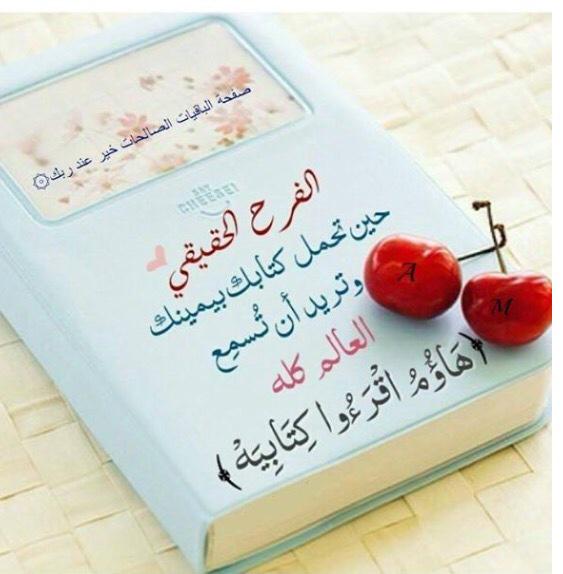 صفحة الباقيات الصالحات خير عند ربك۞
SAY
CHEESE!
الفرح الحقيقي
حين تحمل كتابك بيمينك
وتريد أن تُسمِع
العالم كله
﴿هَاؤُمُ اقْرَءُوا كِتَابِيَهْ﴾
A
M